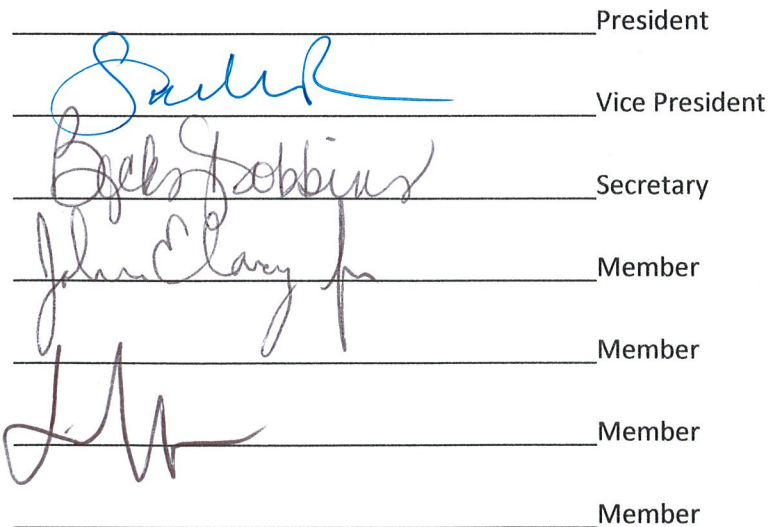 President
Vice President
Becky Robbins Secretary
John Clary Jr Member
Member
Member
Member